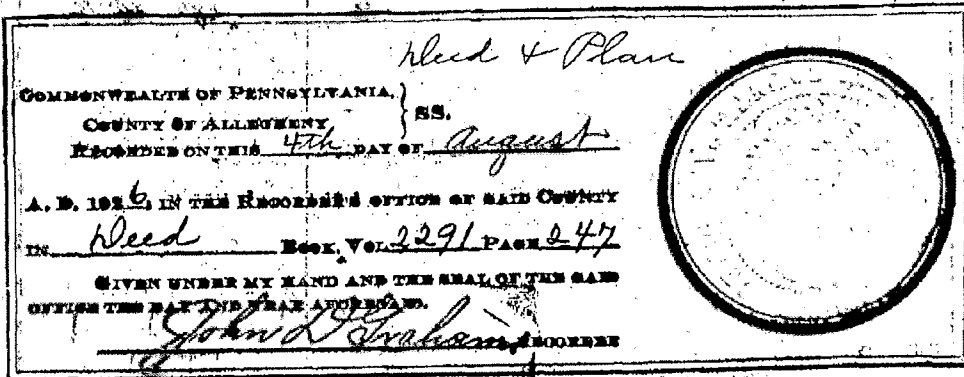 Deed & Plan
COMMONWEALTH OF PENNSYLVANIA, } SS.
COUNTY OF ALLEGHENY
RECORDED ON THIS 4th DAY OF August
A. D. 1926, IN THE RECORDER'S OFFICE OF SAID COUNTY
IN Deed BOOK, VOL. 2291 PAGE 247
GIVEN UNDER MY HAND AND THE SEAL OF THE SAID
OFFICE THE DAY AND YEAR AFORESAID.
John D Graham, RECORDER